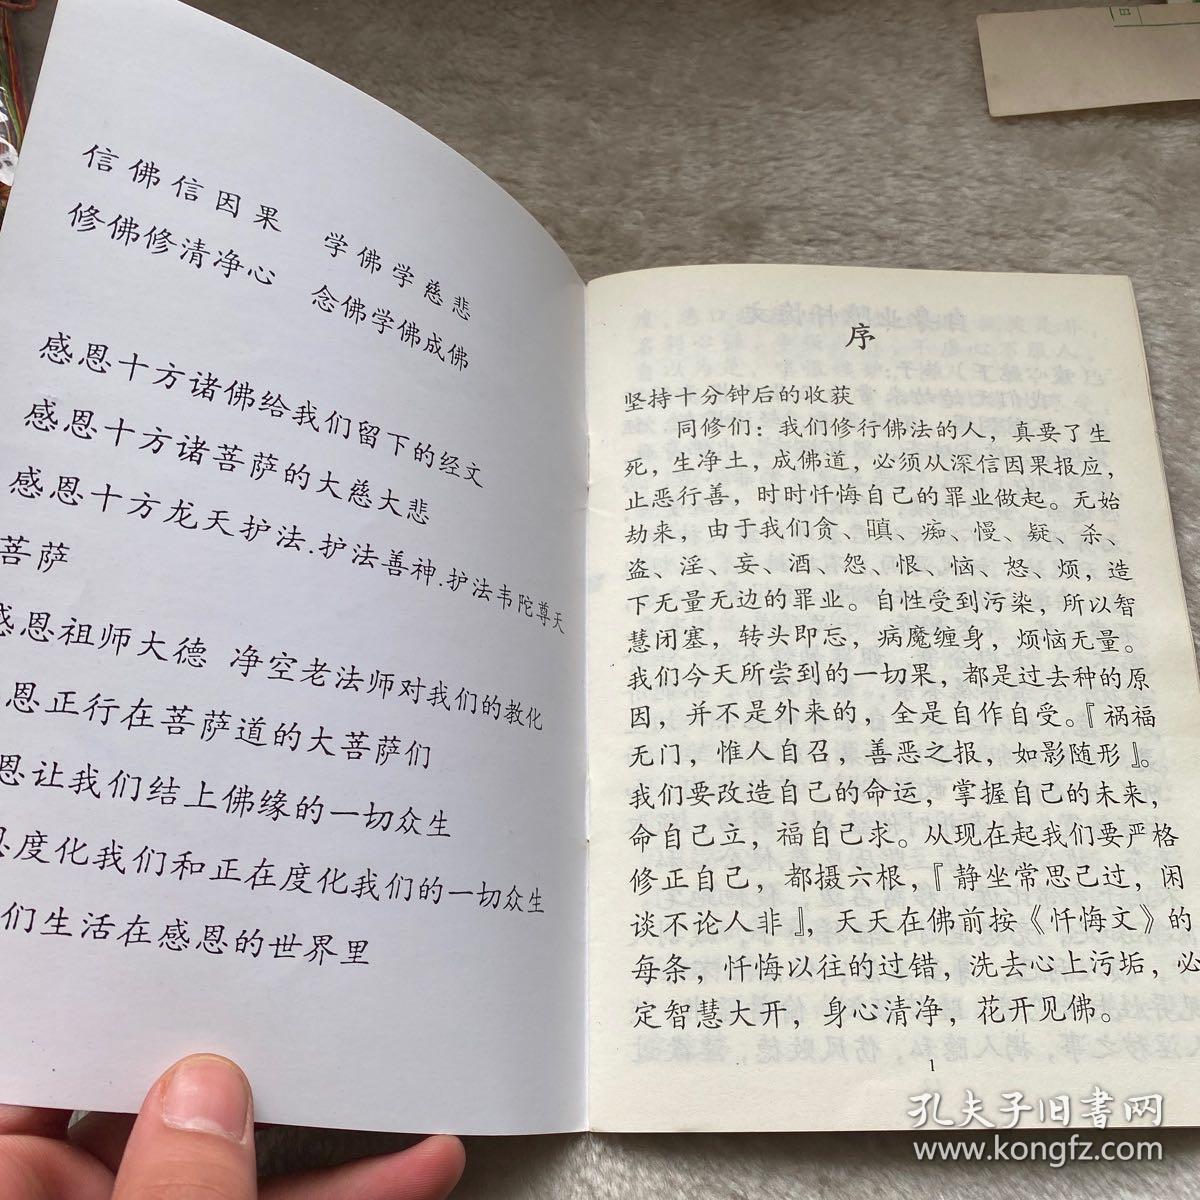 信佛信因果 学佛学慈悲
修佛修清净心 念佛学佛成佛
感恩十方诸佛给我们留下的经文
感恩十方诸菩萨的大慈大悲
感恩十方龙天护法.护法善神.护法韦陀尊天
菩萨
感恩祖师大德 净空老法师对我们的教化
恩正行在菩萨道的大菩萨们
恩让我们结上佛缘的一切众生
恩度化我们和正在度化我们的一切众生
们生活在感恩的世界里
序
坚持十分钟后的收获
同修们：我们修行佛法的人，真要了生
死，生净土，成佛道，必须从深信因果报应，
止恶行善，时时忏悔自己的罪业做起。无始
劫来，由于我们贪、瞋、痴、慢、疑、杀、
盗、淫、妄、酒、怨、恨、恼、怒、烦，造
下无量无边的罪业。自性受到污染，所以智
慧闭塞，转头即忘，病魔缠身，烦恼无量。
我们今天所尝到的一切果，都是过去种的原
因，并不是外来的，全是自作自受。『祸福
无门，惟人自召，善恶之报，如影随形』。
我们要改造自己的命运，掌握自己的未来，
命自己立，福自己求。从现在起我们要严格
修正自己，都摄六根，『静坐常思己过，闲
谈不论人非』，天天在佛前按《忏悔文》的
每条，忏悔以往的过错，洗去心上污垢，必
定智慧大开，身心清净，花开见佛。
1
孔夫子旧书网
www.kongfz.com